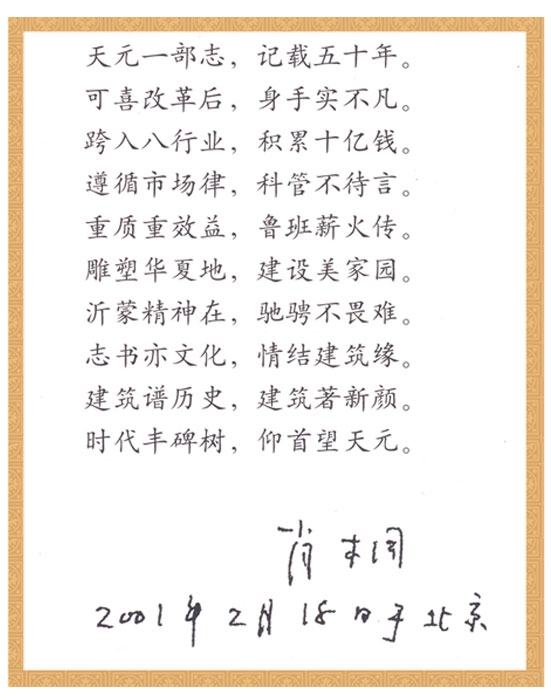 天元一部志，记载五十年。
可喜改革后，身手实不凡。
跨入八行业，积累十亿钱。
遵循市场律，科管不待言。
重质重效益，鲁班薪火传。
雕塑华夏地，建设美家园。
沂蒙精神在，驰骋不畏难。
志书亦文化，情结建筑缘。
建筑谱历史，建筑著新颜。
时代丰碑树，仰首望天元。
肖
2001年2月18日于北京